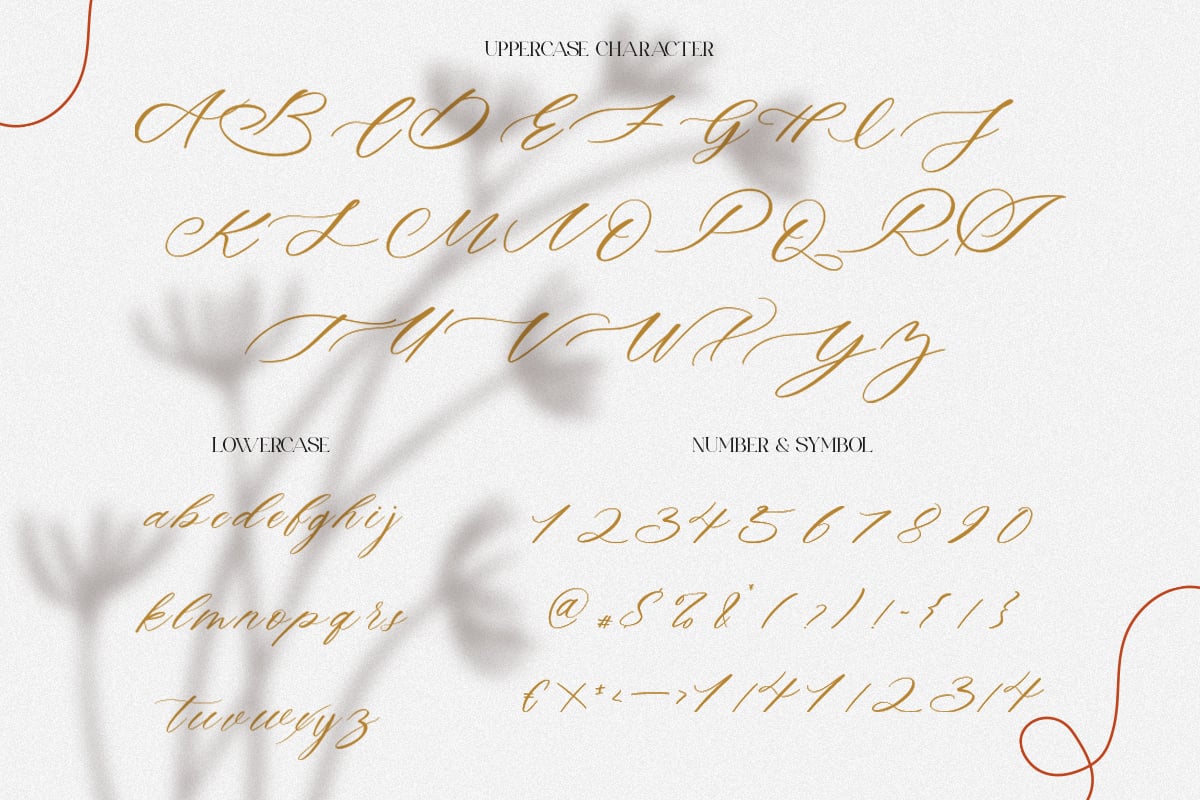 UPPERCASE CHARACTER
A B C D E F G H I J
K L M N O P Q R S
T U V W X Y Z
LOWERCASE
a b c d e f g h i j
k l m n o p q r s
t u v w x y z
NUMBER & SYMBOL
1 2 3 4 5 6 7 8 9 0
@ # $ % & * ( ? ) ! - { / | }
€ × ± < — > 1/4 1/2 3/4